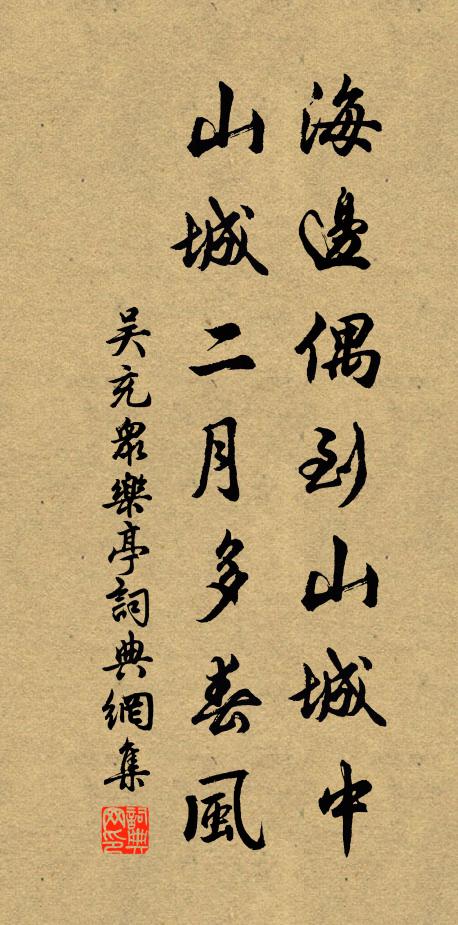 海邊偶到山城中
山城二月多春風
吴充衆樂亭詞典網集
詞典網印